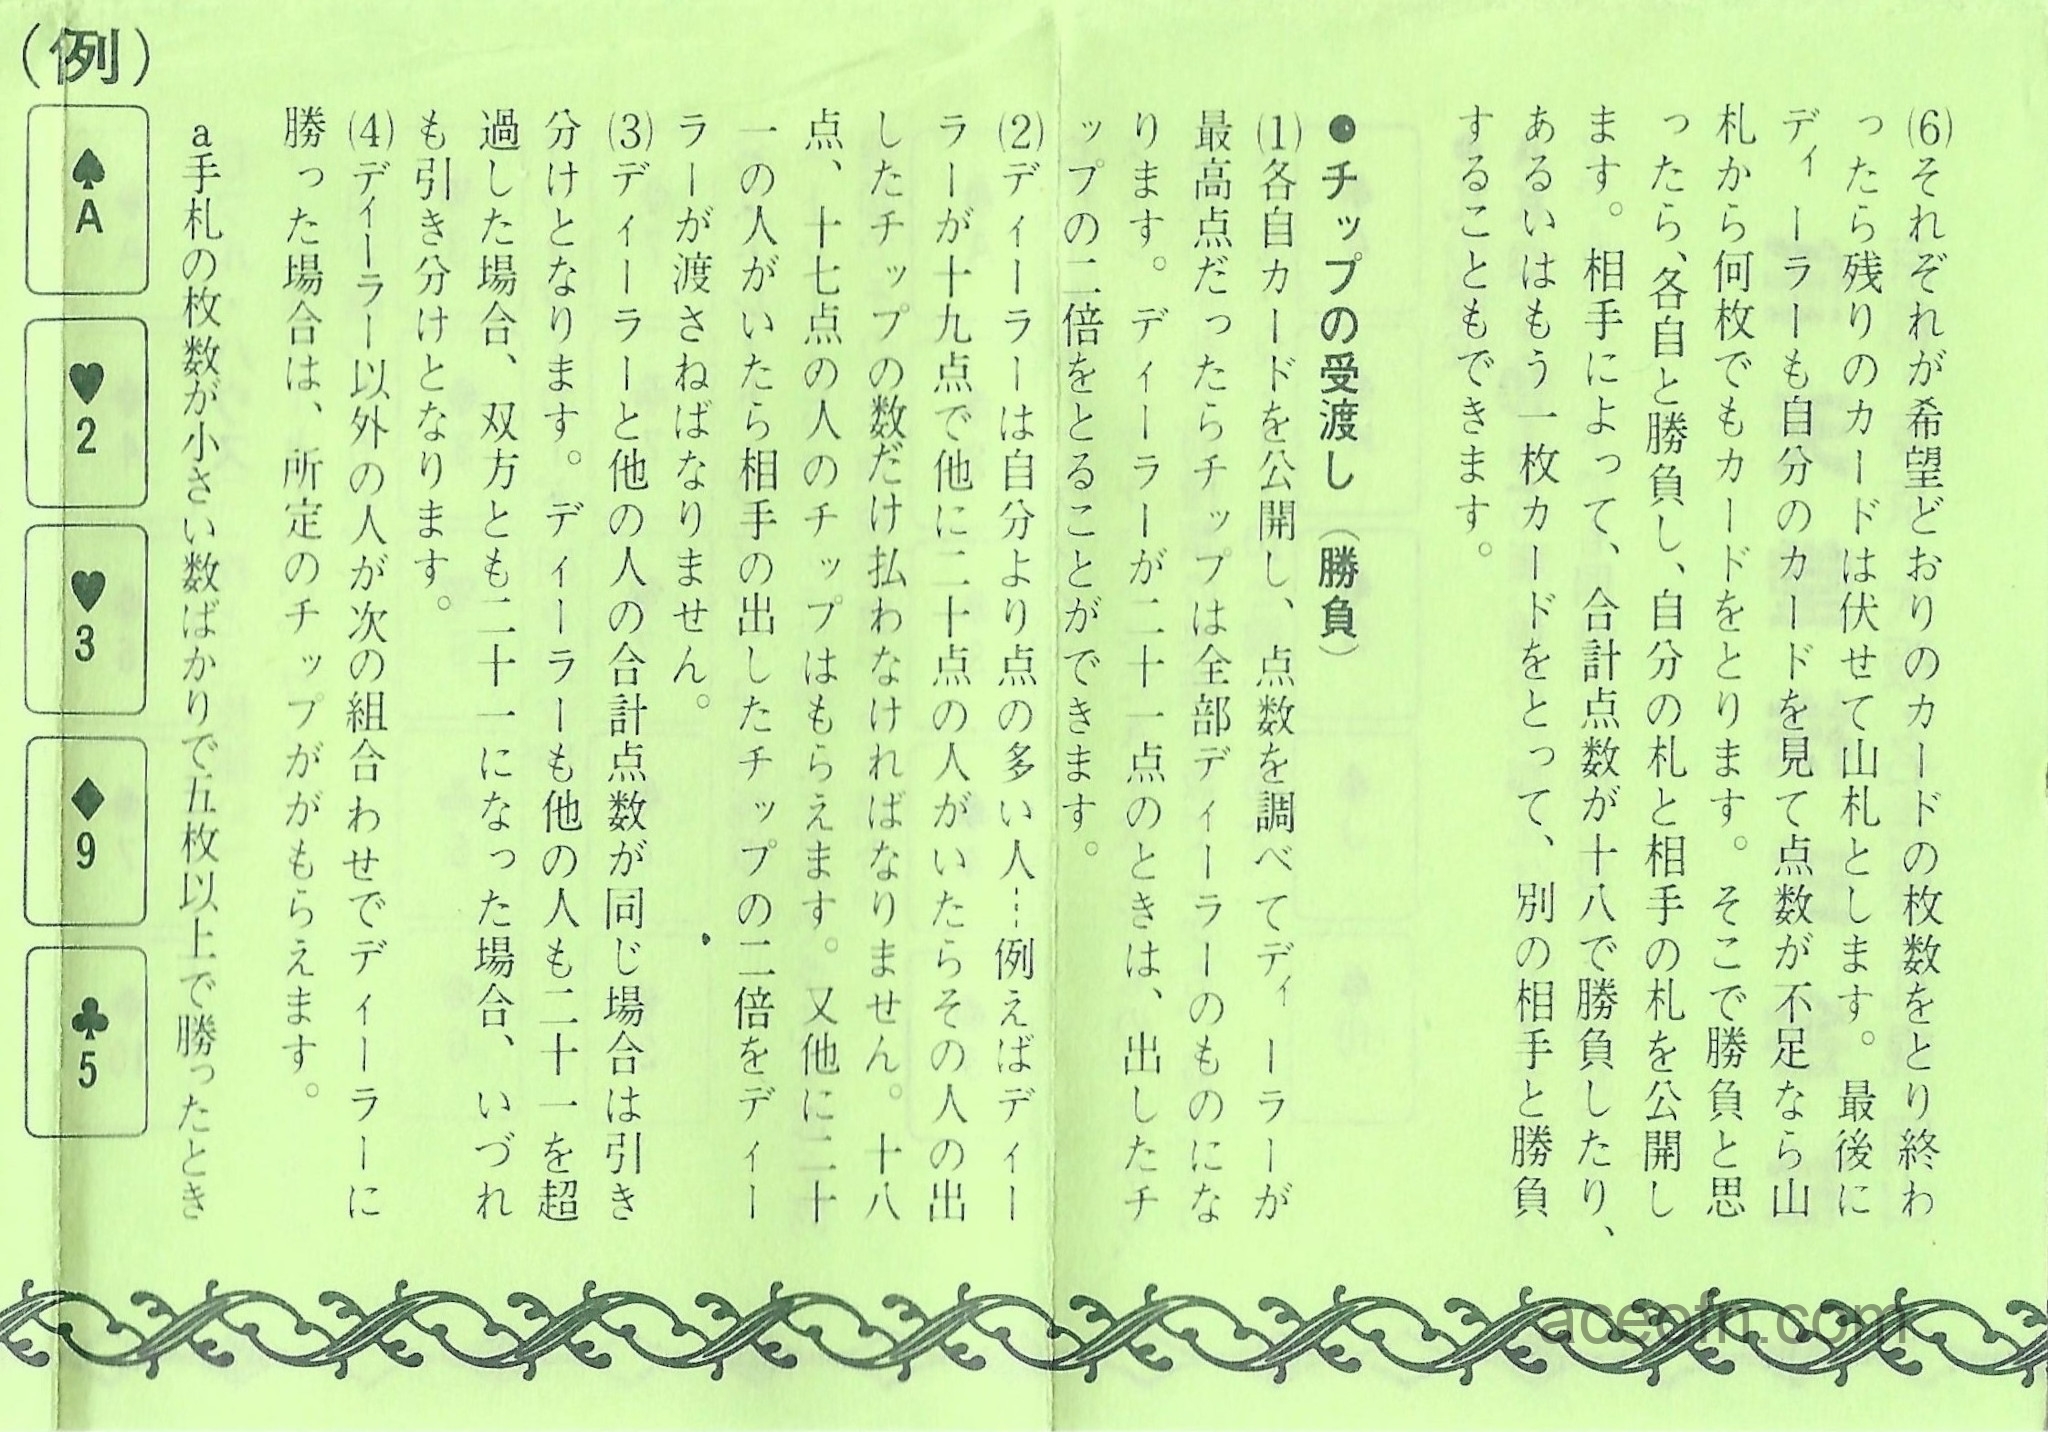 ⑹それぞれが希望どおりのカードの枚数をとり終わ
ったら残りのカードは伏せて山札とします。最後に
ディーラーも自分のカードを見て点数が不足なら山
札から何枚でもカードをとります。そこで勝負と思
ったら、各自と勝負し、自分の札と相手の札を公開し
ます。相手によって、合計点数が十八で勝負したり、
あるいはもう一枚カードをとって、別の相手と勝負
することもできます。
●チップの受渡し（勝負）
⑴各自カードを公開し、点数を調べてディーラーが
最高点だったらチップは全部ディーラーのものにな
ります。ディーラーが二十一点のときは、出したチ
ップの二倍をとることができます。
⑵ディーラーは自分より点の多い人…例えばディー
ラーが十九点で他に二十点の人がいたらその人の出
したチップの数だけ払わなければなりません。十八
点、十七点の人のチップはもらえます。又他に二十
一の人がいたら相手の出したチップの二倍をディー
ラーが渡さねばなりません。
⑶ディーラーと他の人の合計点数が同じ場合は引き
分けとなります。ディーラーも他の人も二十一を超
過した場合、双方とも二十一になった場合、いづれ
も引き分けとなります。
⑷ディーラー以外の人が次の組合わせでディーラーに
勝った場合は、所定のチップががもらえます。
a手札の枚数が小さい数ばかりで五枚以上で勝ったとき
（例）
♠A
♥2
♥3
♦9
♣5
aceofn.com